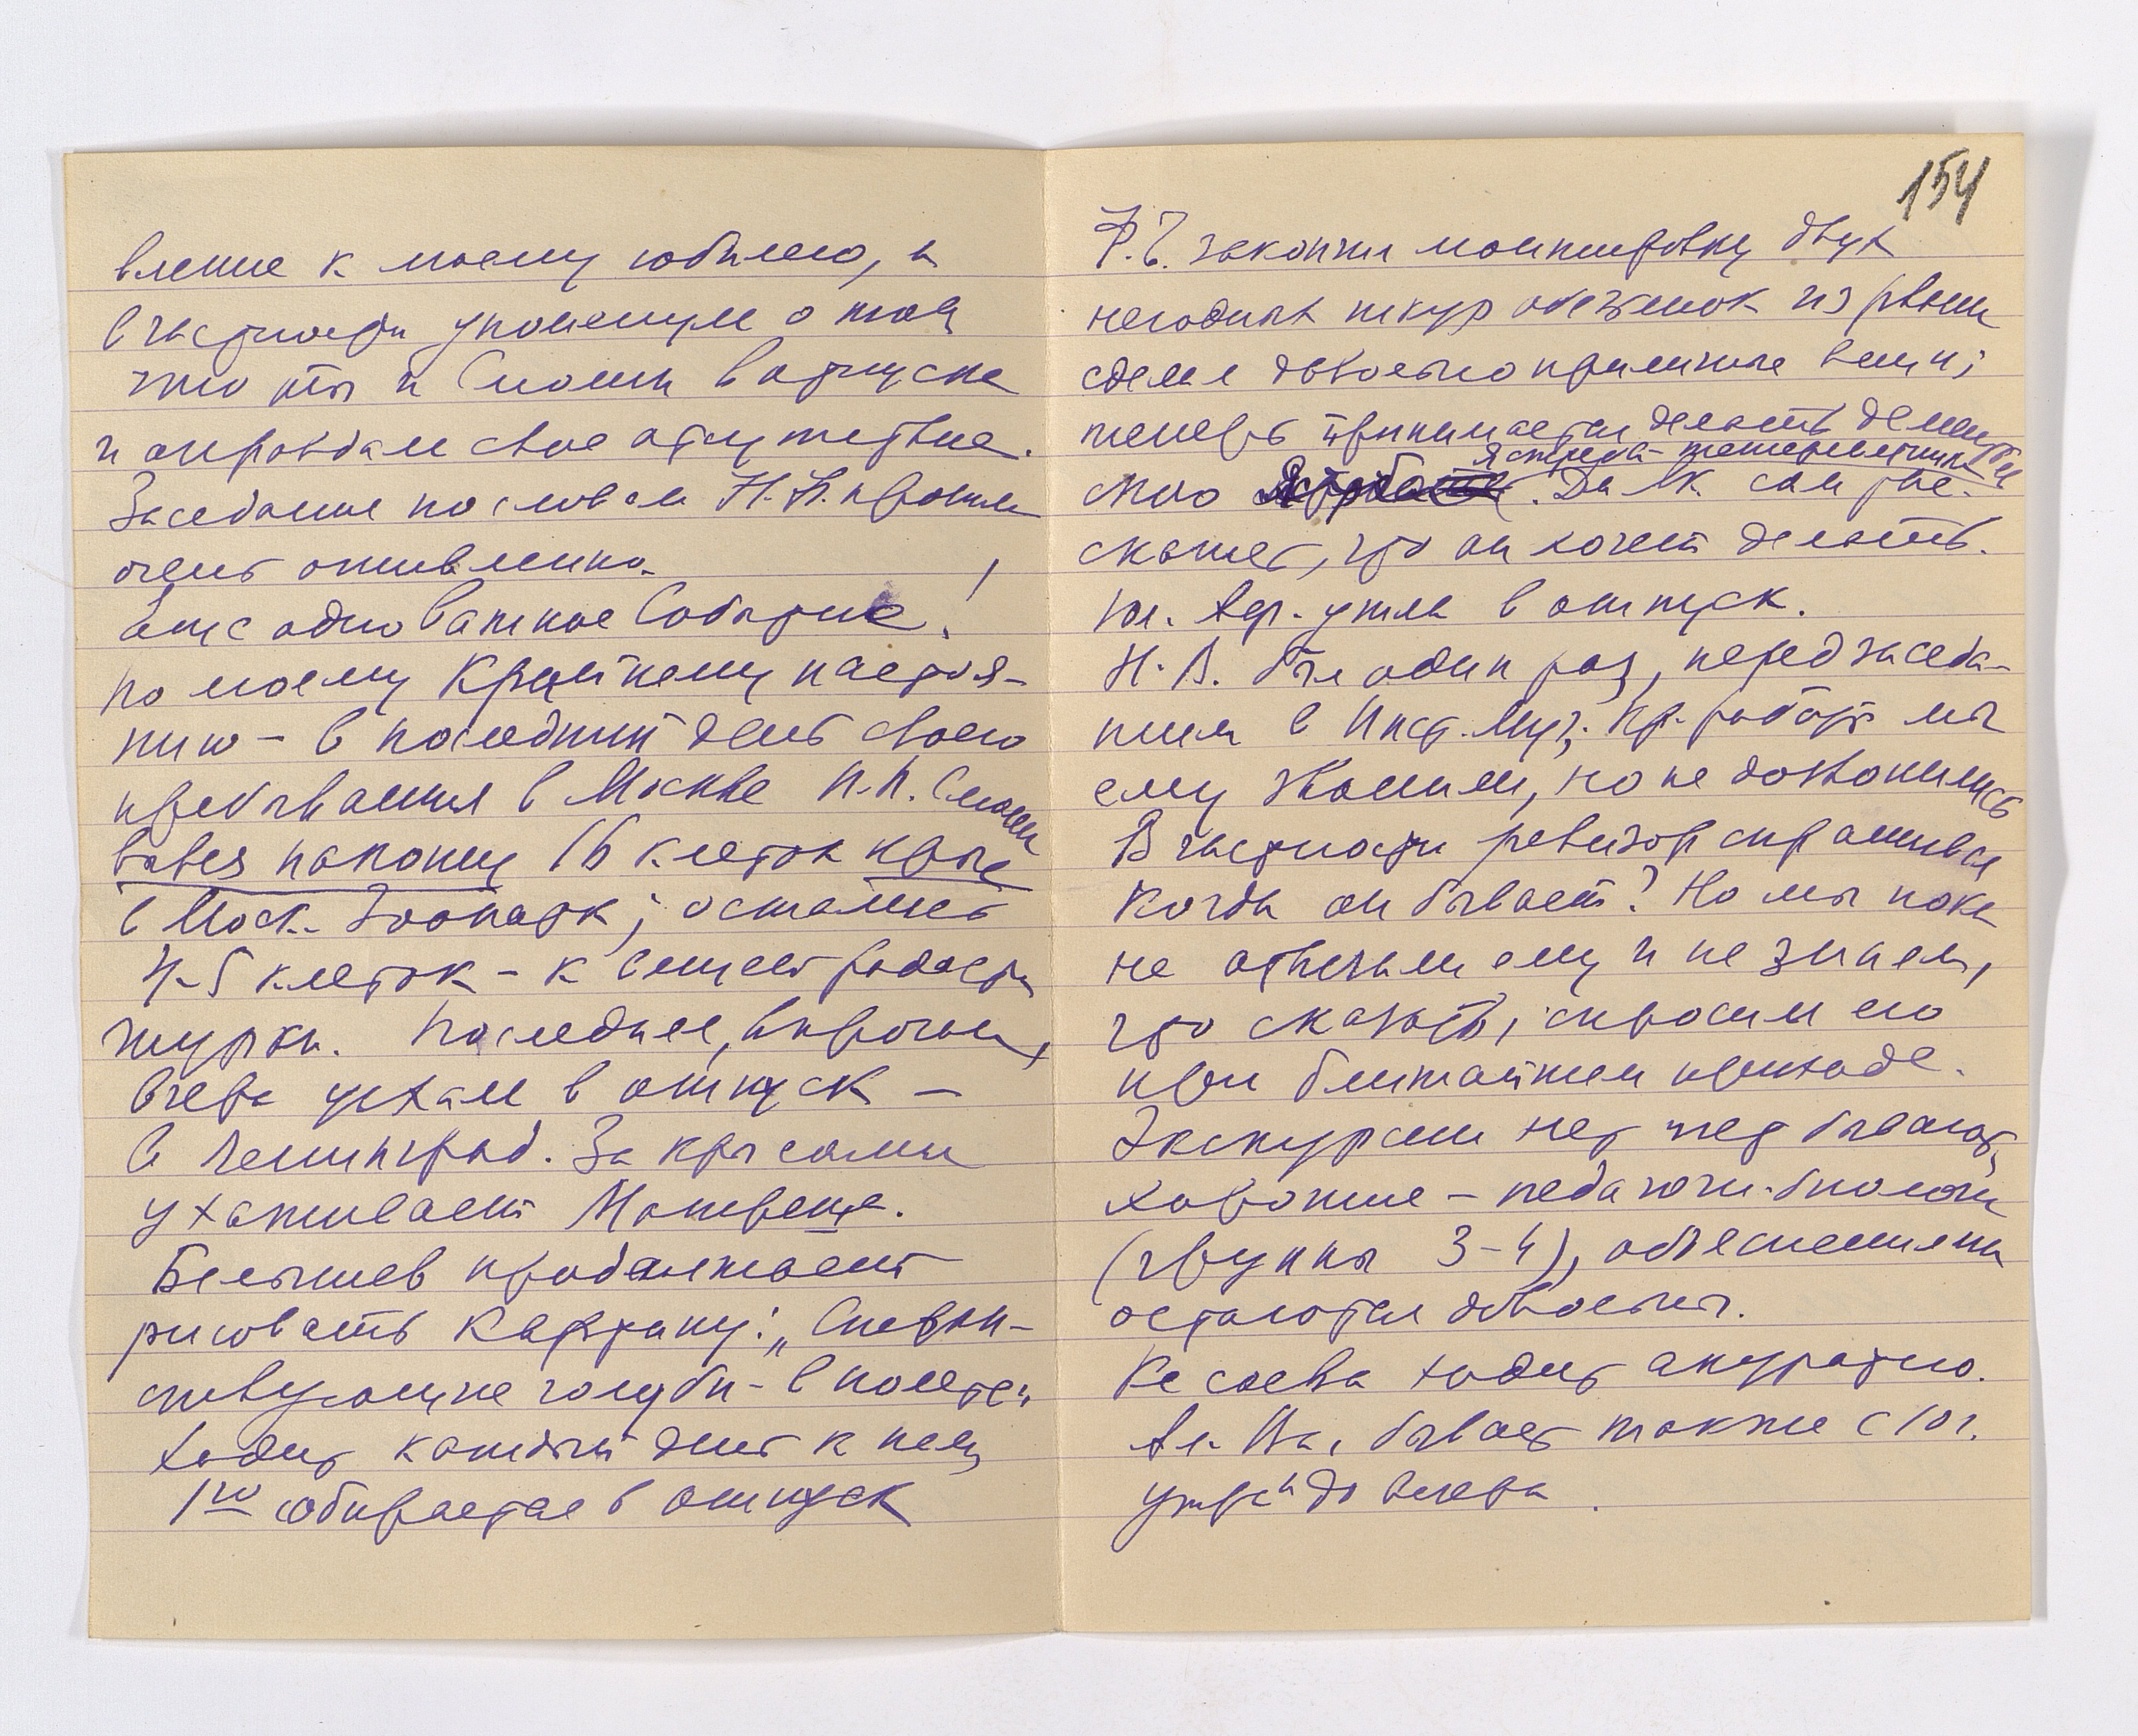 вление к моему юбилею, и
в частности упомянули о том,
что ты и Смолин в отпуске
и оправдали свое отсутствие.
Заседание по словам Н.Н. прошло
очень оживленно.
Еще одно Важное Событие!
по моему Крайнему настоя-
нию – в последний день своего
пребывания в Москве П.П. Смолин
вывез наконец 16 клеток крыс
в Моск. Зоопарк; остались
4-5 клеток – к
Последнее, впрочем,
вчера уехал в отпуск –
в Ленинград. За крысами
ухаживает Мотренца.
Белышев продолжает
рисовать Картину: „
голуби – в полете"
Ходит каждый день к нему
1го собирается в отпуск
154
Ф.Е. закончил монтировку двух
негодных шкур обезьянок из рвани
сделал довольно приличные вещи;
теперь принимается делать
ястреба-тетеревятника
смого . Да
скажет, что он хочет делать.
Юл. Адр. ушла в отпуск.
Н.В. был один раз, перед заседа-
нием в Инст. Муз. Кр. работы мы
ему звонили, но не дозвонились
В частности ревизор спрашивал
Когда он бывает? Но мы пока
не отвечали ему и не знаем,
что сказать, спросим его
при ближайшем приходе.
Экскурсии нет нет бывают,
хорошие – педагоги-биологи
(группы 3-4), объяснениями
остаются довольны.
ходит акуратно.
бывает также с 10 ч.
утра до вечера.